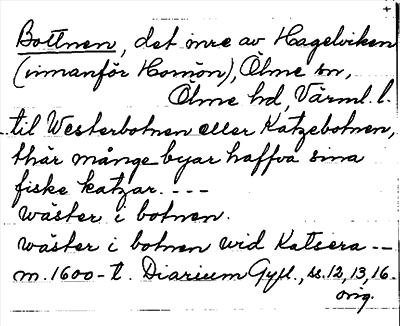 Bottnen, det inre av Hagelviken
(innanför Homön), Ölme sn,
Ölme hd, Värml. l.
til Westerbotnen eller Katzebotnen,
thär månge byar haffva sina
fiske katzar. ---
wäster i botnen.
wäster i botnen wid Katsera --
m. 1600-t. Diarium Gyll., ss. 12, 13, 16.
orig.